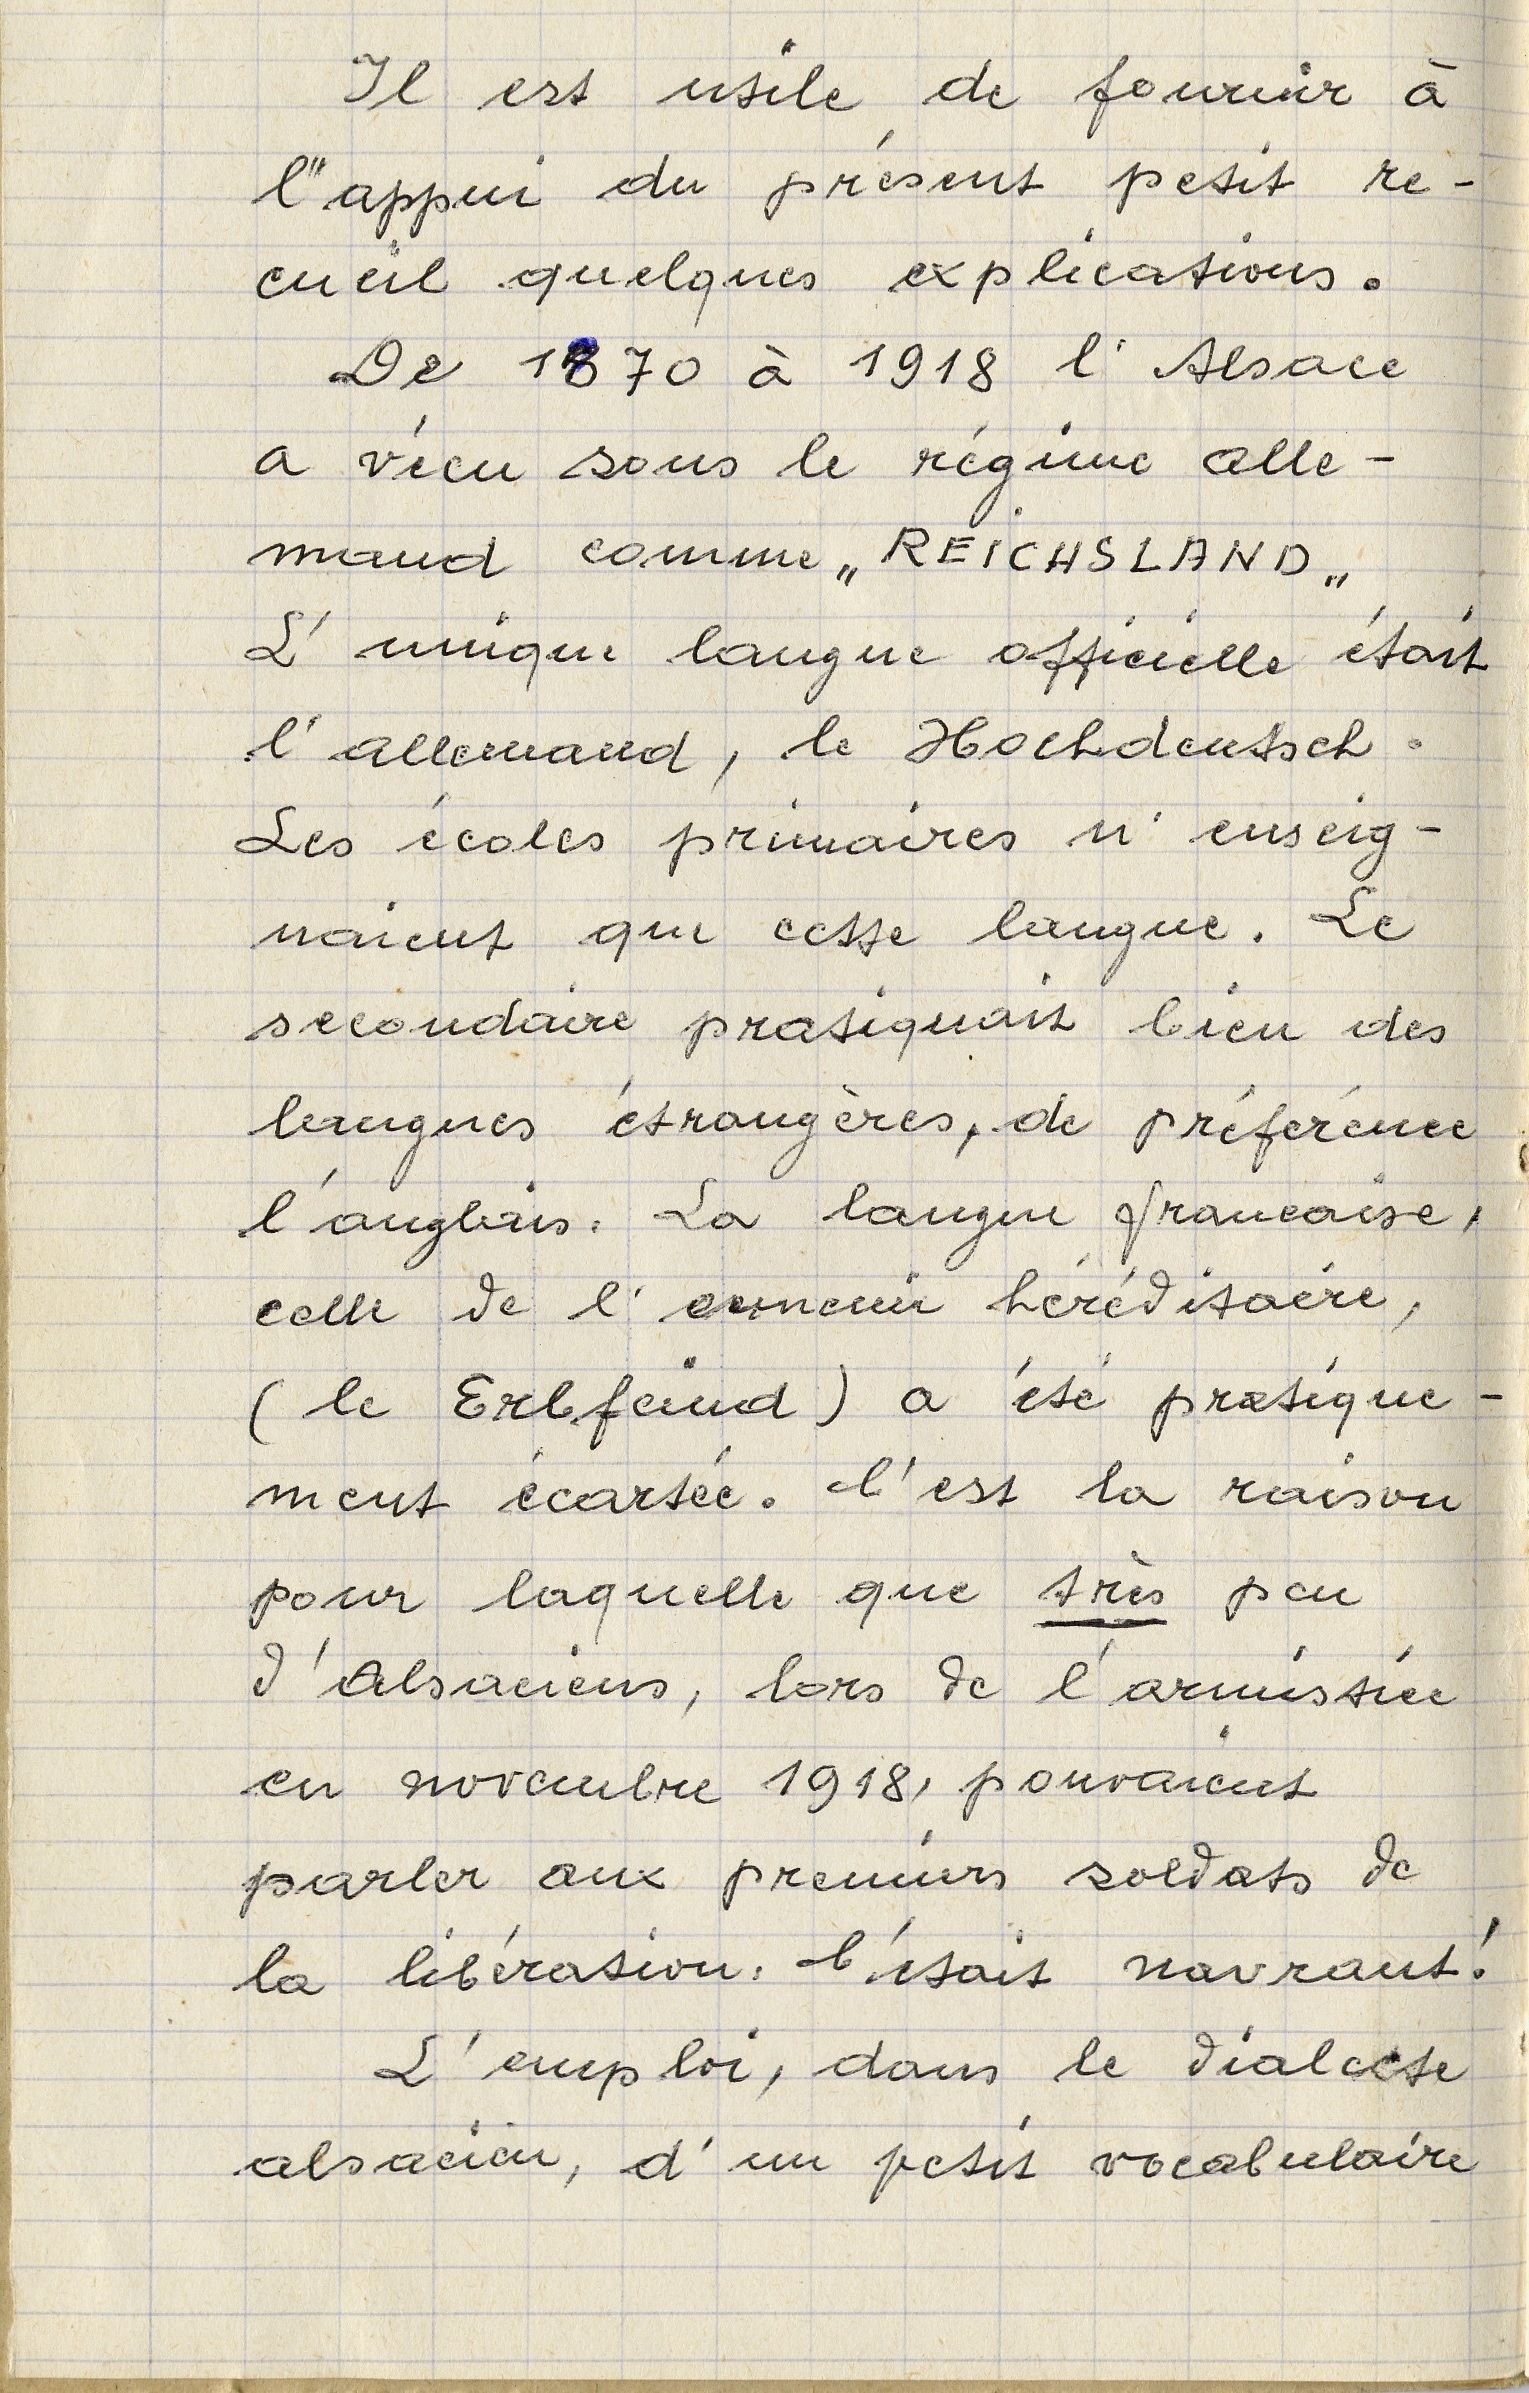 Il est utile de fournir à
l'appui du présent petit re-
cueil quelques explications.
De 1870 à 1918 l'Alsace
a vécu sous le régime alle-
mand comme „REICHSLAND„
L'unique langue officielle était
l'allemand, le Hochdeutsch.
Les écoles primaires n'enseig-
naient que cette langue. Le
secondaire pratiquait bien des
langues étrangères, de préférence
l'anglais. La langue francaise,
celle de l'ennemi héréditaire,
(le Erbfeind) a été pratique-
ment écartée. C'est la raison
pour laquelle que très peu
d'Alsaciens, lors de l'armistice
en novembre 1918, pouvaient
parler aux premiers soldats de
la libération. C'était navrant!
L'emploi, dans le dialecte
alsacien, d'un petit vocabulaire